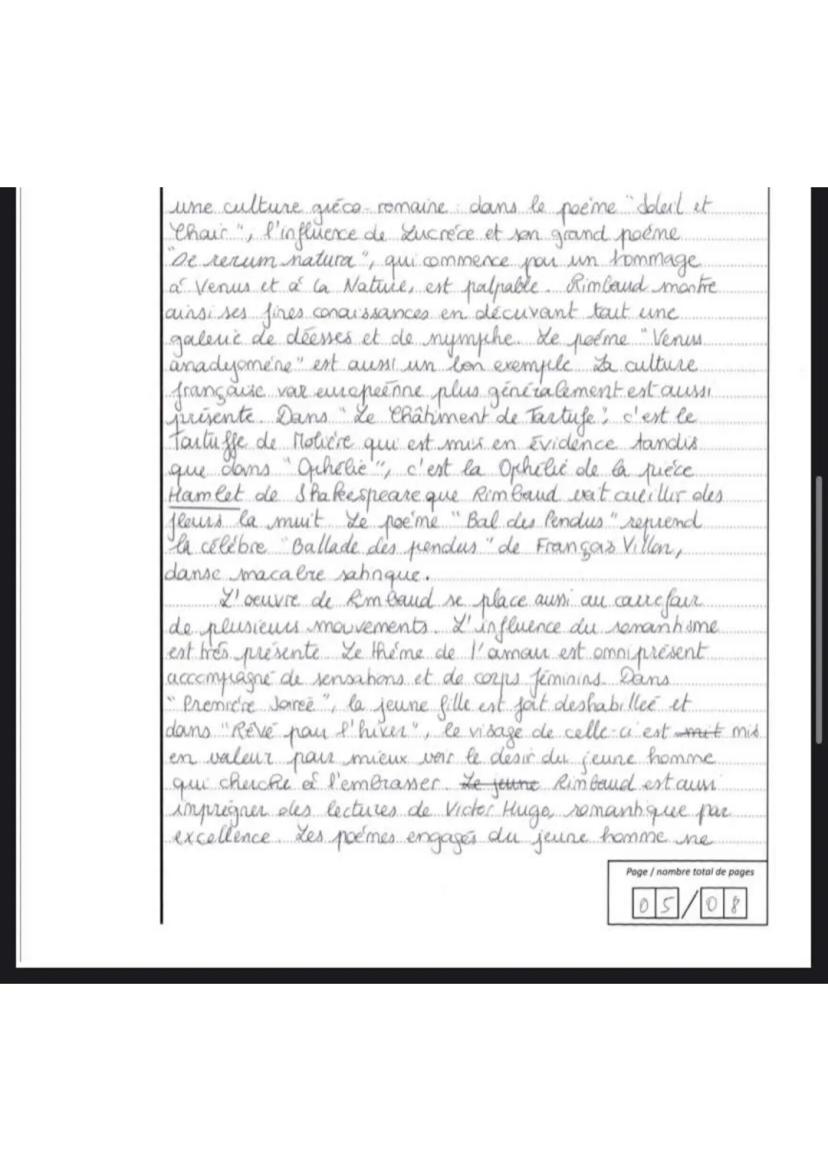 une culture gréco-romaine : dans le poème "Soleil et
Chair", l'influence de Lucrèce et son grand poème
"De rerum natura", qui commence par un hommage
à Venus et à la Nature, est palpable. Rimbaud montre
ainsi ses fines conaissances en décrivant tout une
galerie de déesses et de nymphe. Le poème "Venus
anadyomène" est aussi un bon exemple. La culture
française voir européenne plus généralement est aussi
présente. Dans "Le Châtiment de Tartufe", c'est le
Tartuffe de Molière qui est mis en évidence tandis
que dans "Ophélie", c'est la Ophélie de la pièce
Hamlet de Shakespeare que Rimbaud voit cueillir des
fleurs la nuit. Le poème "Bal des Pendus" reprend
la célèbre "Ballade des pendus" de François Villon,
danse macabre satirique.
L'oeuvre de Rimbaud se place aussi au carrefour
de plusieurs mouvements. L'influence du romantisme
est très présente. Le thème de l'amour est omniprésent
accompagné de sensations et de corps féminins. Dans
"Première soirée", la jeune fille est fort deshabillée et
dans "Rêvé pour l'hiver", le visage de celle-ci est mit mis
en valeur pour mieux voir le désir du jeune homme
qui cherche à l'embrasser. Le jeune Rimbaud est aussi
imprégner des lectures de Victor Hugo, romantique par
excellence. Les poèmes engagés du jeune homme ne
Page / nombre total de pages
05/08